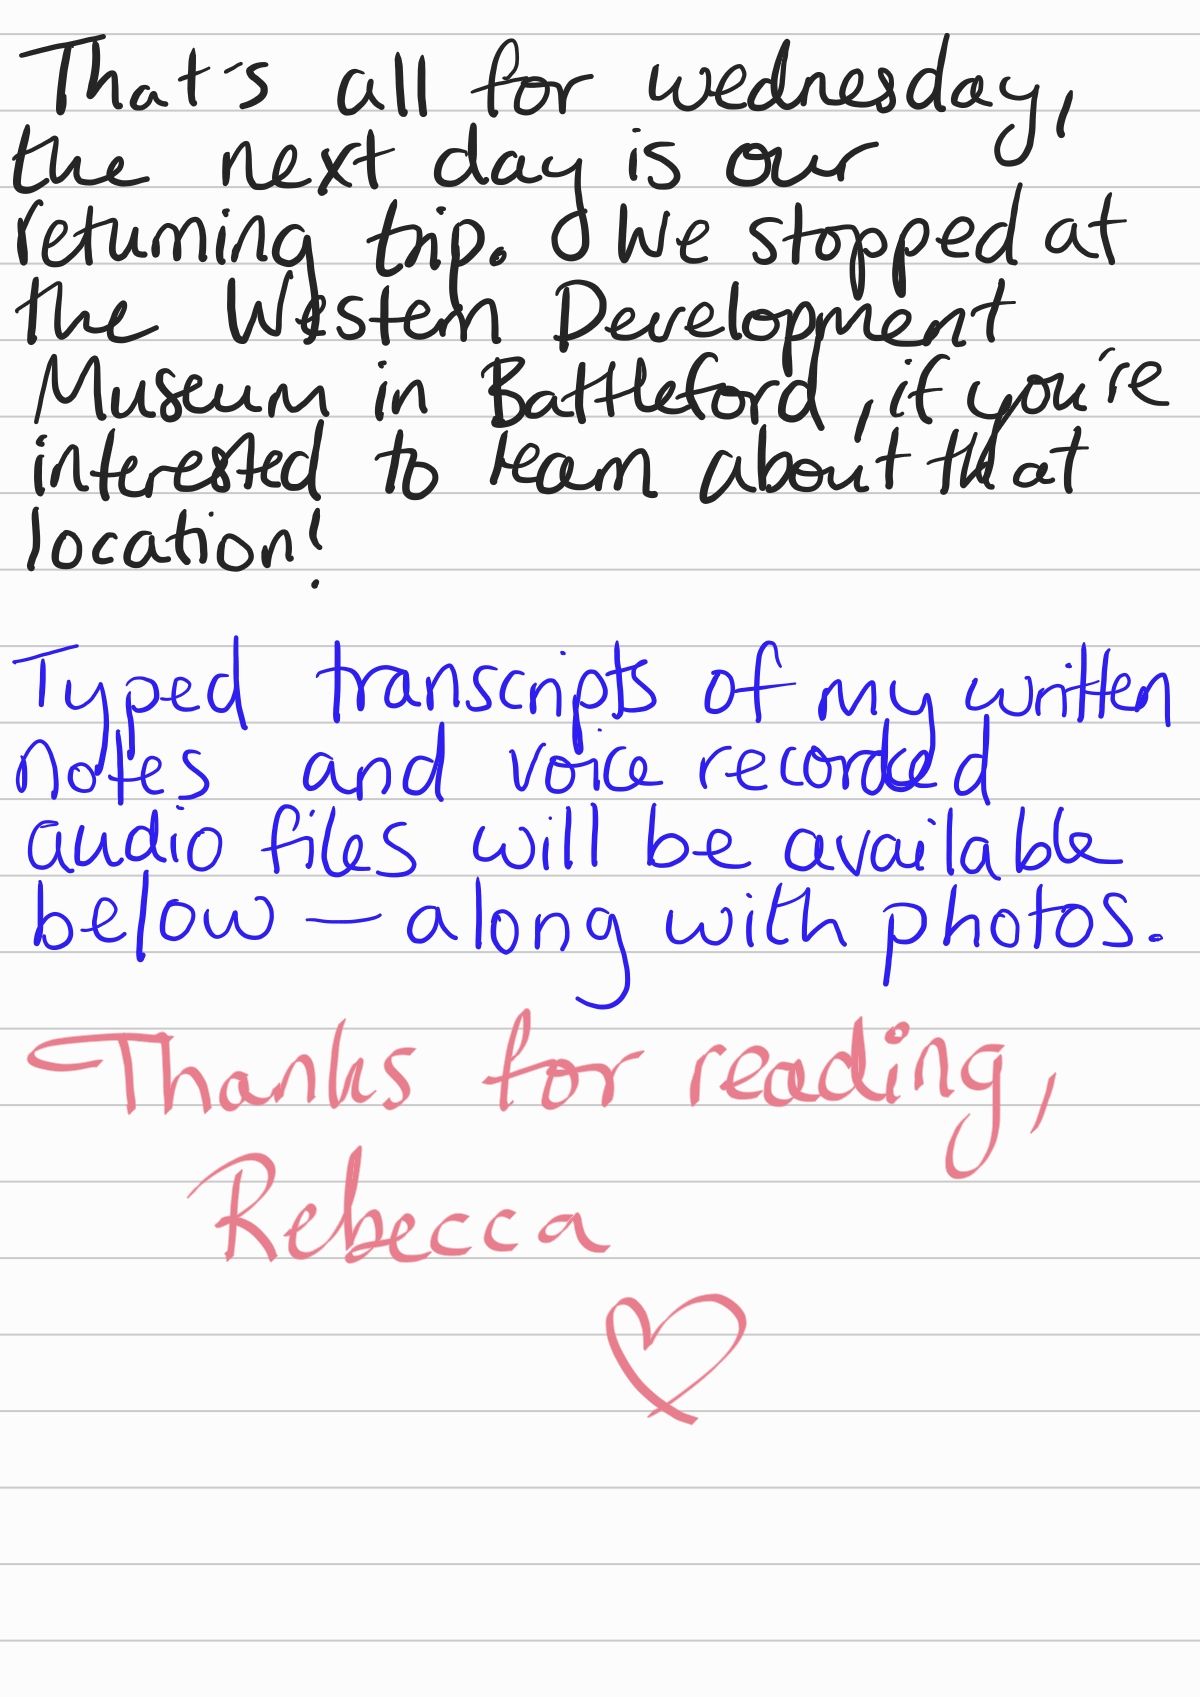 That's all for wednesday,
the next day is our
returning trip. We stopped at
the Western Development
Museum in Battleford, if you're
interested to learn about that
location!
Typed transcripts of my written
notes and voice recorded
audio files will be available
below — along with photos.
Thanks for reading,
Rebecca